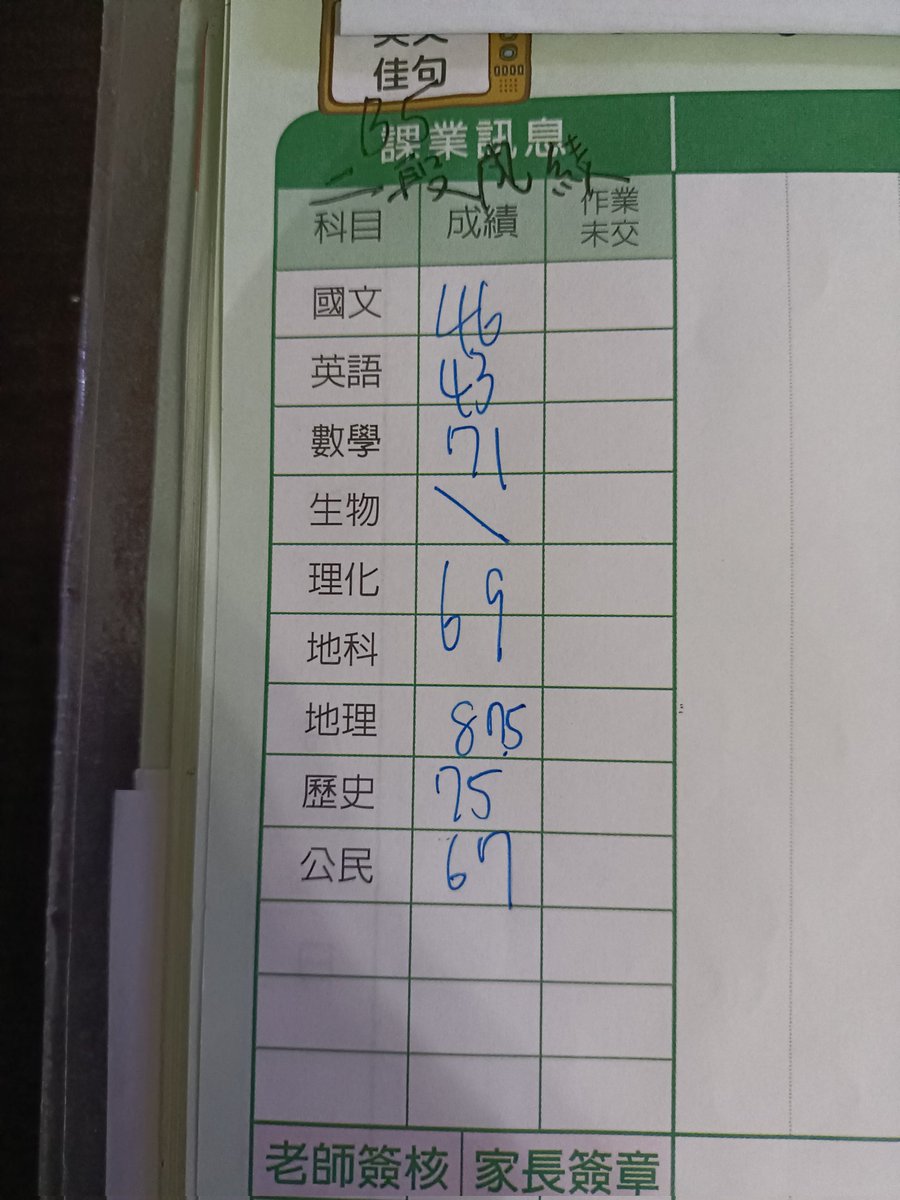 佳句
B5
課業訊息
二段成績
科目 成績 作業未交
國文 46
英語 43
數學 71
生物 \
理化 69
地科
地理 87.5
歷史 75
公民 67
老師簽核 家長簽章